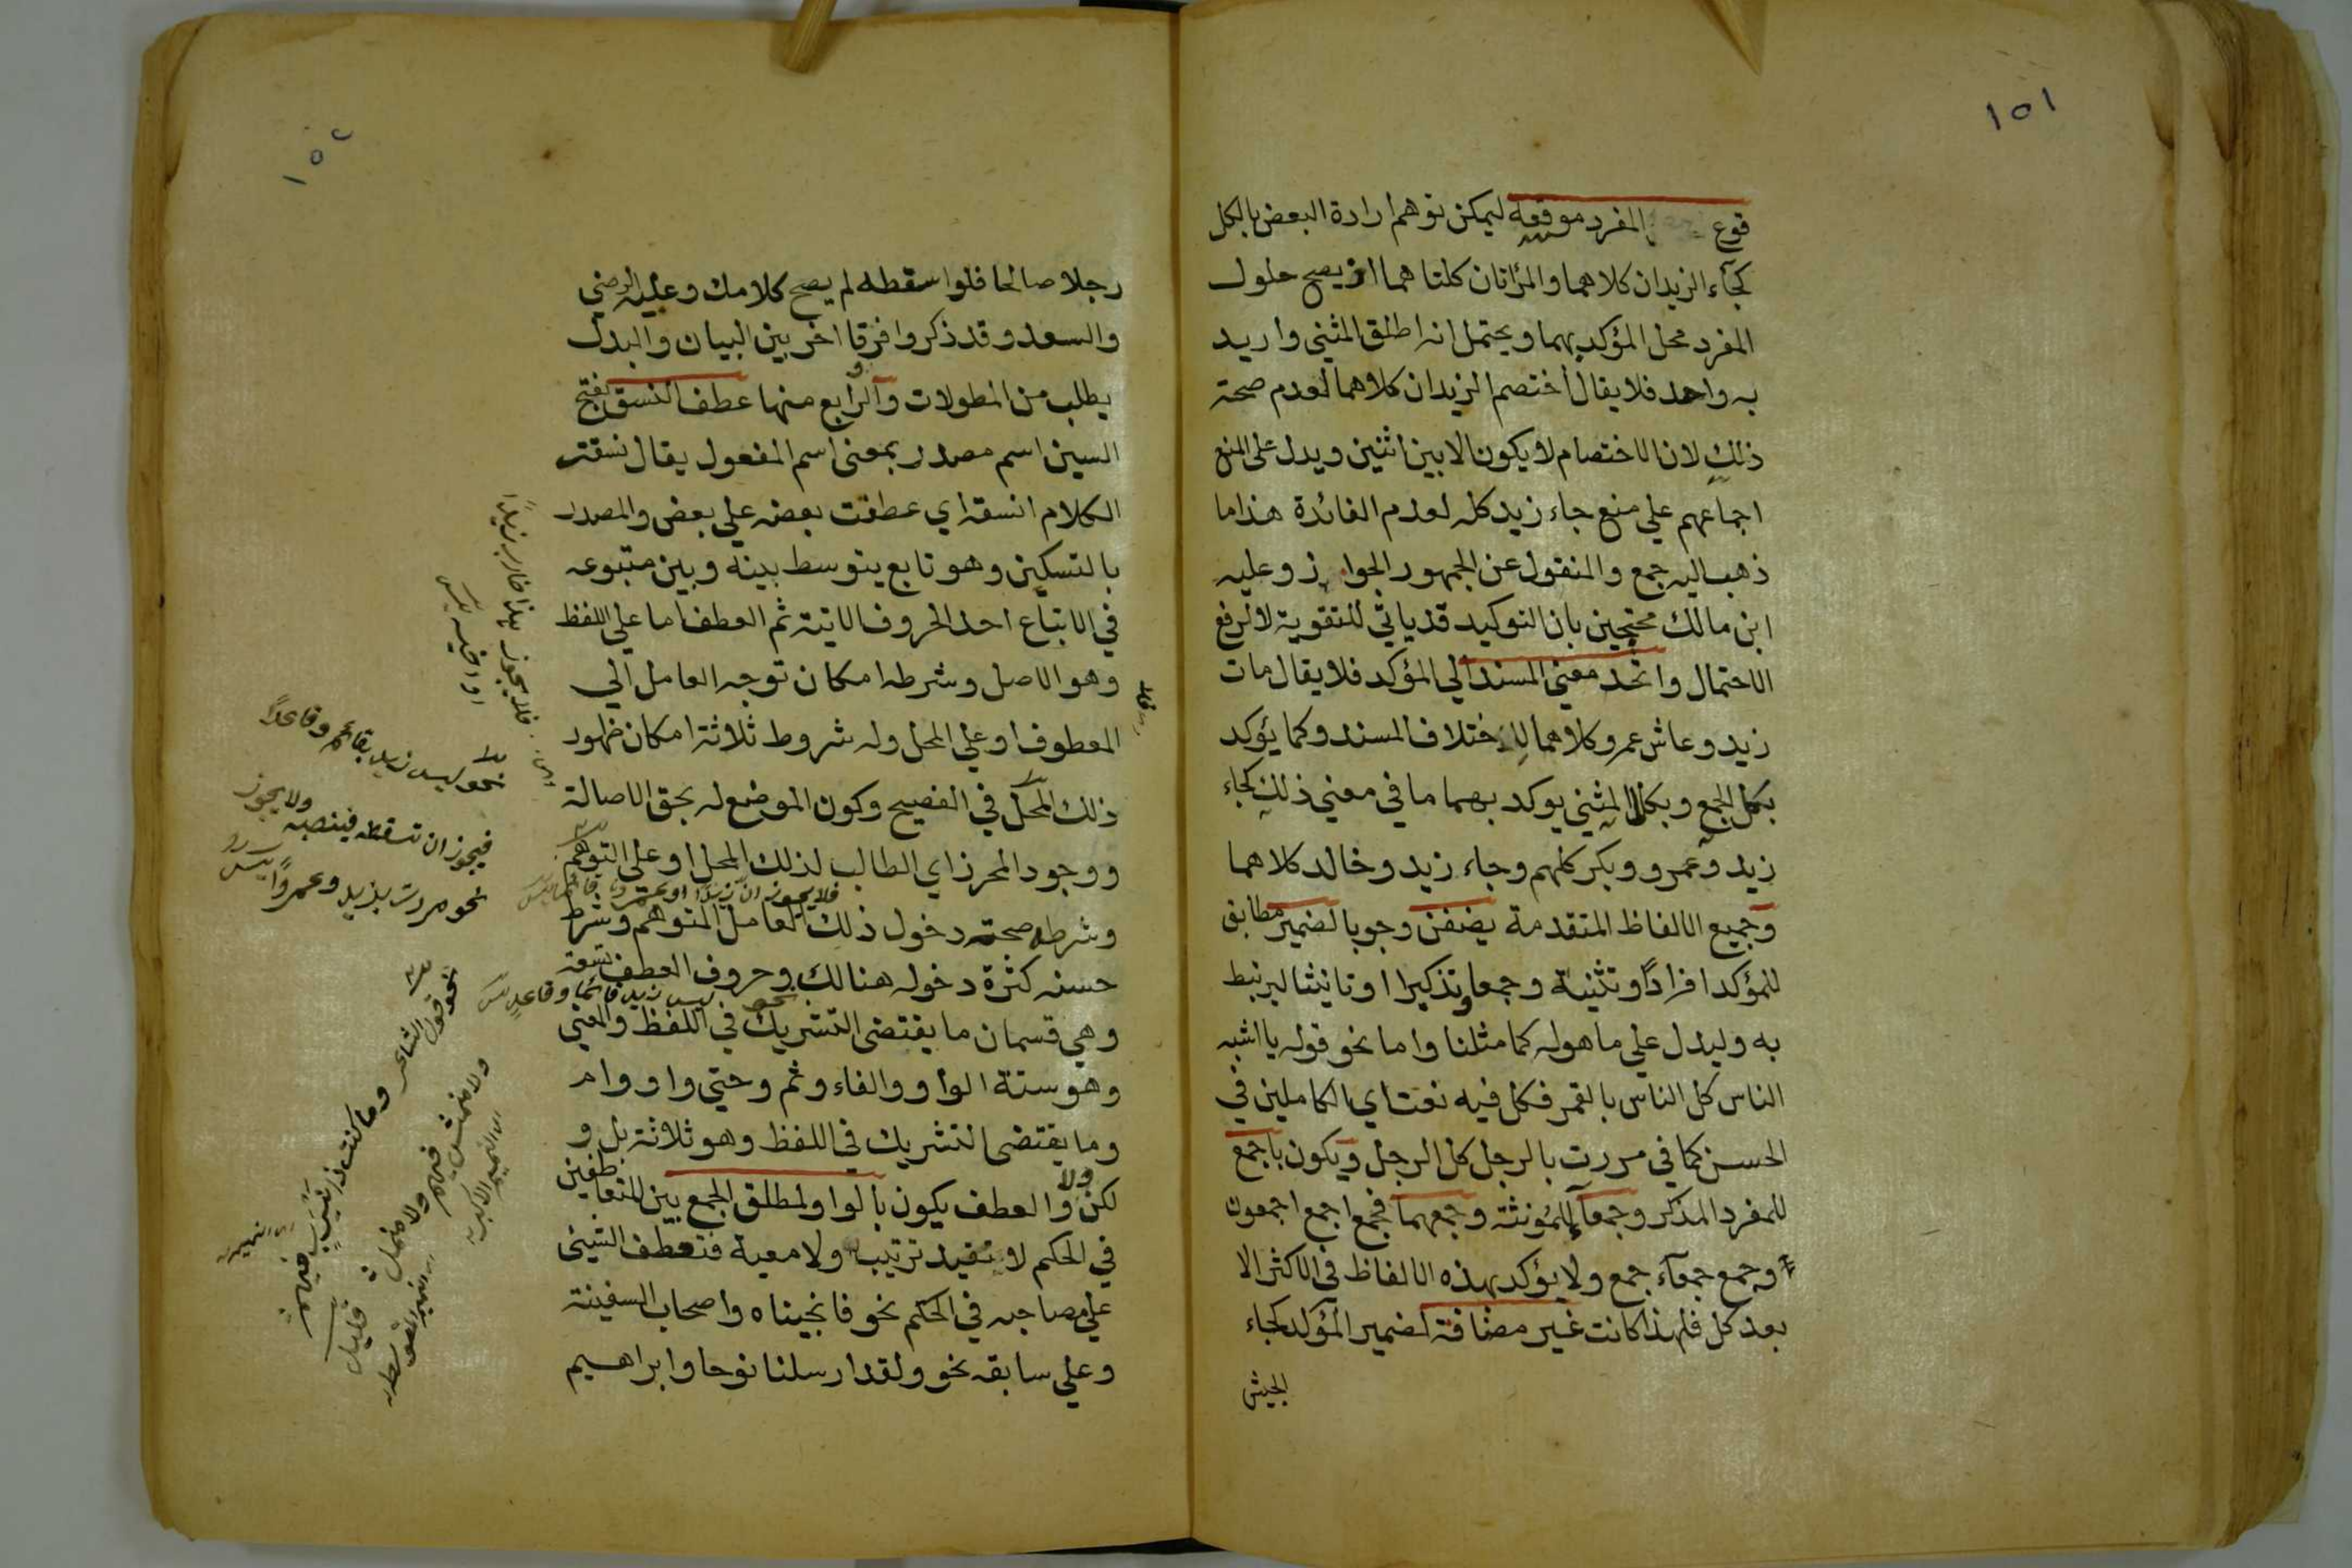 ١٥١
قوع المفرد موقعه ليمكن توهم ارادة البعض بالكل
كجآء الزيدان كلاهما والمرأتان كلتاهما اذ يصح حلول
المفرد محل المؤكد بهما ويحتمل انه اطلق المثنى واريد
به واحد فلا يقال أختصم الزيدان كلاهما لعدم صحة
ذلك لان الاختصام لا يكون الا بين اثنين ويدل على المنع
اجماعهم علي منع جاء زيد كله لعدم الفائدة هذا ما
ذهب اليه جمع والمنقول عن الجمهور الجواز وعليه
ابن مالك محتجين بان التوكيد قد ياتي للتقوية لا لرفع
الاحتمال واتحد معنى المسند الي المؤكد فلا يقال مات
زيد وعاش عمرو كلاهما لاختلاف المسند وكما يؤكد
بكل الجمع وبكلا المثني يوكد بهما ما في معني ذلك كجاء
زيد وعمرو وبكر كلهم وجاء زيد وخالد كلاهما
وجميع الالفاظ المتقدمة يضفن وجوبا لضمير مطابق
للمؤكد افرادًا وتثنية وجمعا وتذكيرا او تانيثا ليرتبط
به وليدل علي ما هو له كما مثلنا واما نحو قوله يا اشبه
الناس كل الناس بالقمر فكل فيه نعت اي الكاملين في
الحسن كما في مررت بالرجل كل الرجل ويكون باجمع
للمفرد المذكر وجمعآ للمؤنثة وجمعهما فجمع اجمع اجمعون
وجمع جمعآء جمع ولا يؤكد بهذه الالفاظ في الاكثر الا
بعد كل فلهذا كانت غير مضافة لضمير المؤكد كجاء
الجيش
١٥٢
رجلا صالحا فلو اسقطه لم يصح كلامك وعليه الرضي
والسعد وقد ذكروا فرقا اخر بين البيان والبدل
يطلب من المطولات والرابع منها عطف النسق بفتح
السين اسم مصدر بمعنى اسم المفعول يقال نسقت
الكلام انسقه اي عطفت بعضه علي بعض والمصدر
بالتسكين وهو تابع يتوسط بينه وبين متبوعه
في الاتباع احد الحروف الاتية ثم العطف اما علي اللفظ
وهو الاصل وشرطه امكان توجه العامل الي
المعطوف او علي المحل وله شروط ثلاثة امكان ظهور
ذلك المحل في الفصيح وكون الموضع له بحق الاصالة
ووجود المحرز اي الطالب لذلك المحل او على التوهم
فلا يجوز ان زيدا او عمرو
وشرطه صحة دخول ذلك العامل المتوهم وشرط
حسنه كثرة دخوله هنالك وحروف العطف تسعة
نحو ليس زيد قائما وقاعد
وهي قسمان ما يقتضى التشريك في اللفظ والمعني
وهو ستة الواو والفاء وثم وحتي واو وام
وما يقتضى التشريك في اللفظ وهو ثلاثة بل و
لكن ولا والعطف يكون بالواو لمطلق الجمع بين المتعاطفين
في الحكم لا تفيد ترتيب ولا معية فتعطف الشيئ
علي مصاحبه في الحكم نحو فانجيناه واصحاب السفينة
وعلي سابقه نحو ولقد ارسلنا نوحا وابراهيم
نحو ليس زيد بقائم وقاعدًا
فيجوز ان تسقطه فينصبه ولا يجوز
نحو مررت بزيد وعمروًا
نحو قول الشاعر وما كنت ذا نيرب فيهم
ولا منمش فيهم ولا منمل